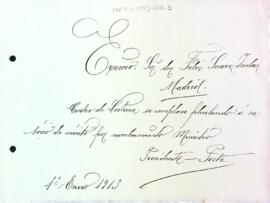 Excmo. Sr. Dn. Félix Suarez Inclan
Madrid.
Centro de Lectura se complace felicitando á su
sócio de mérito por nombramiento Ministro
Presidente - Porta
1º Enero 1913